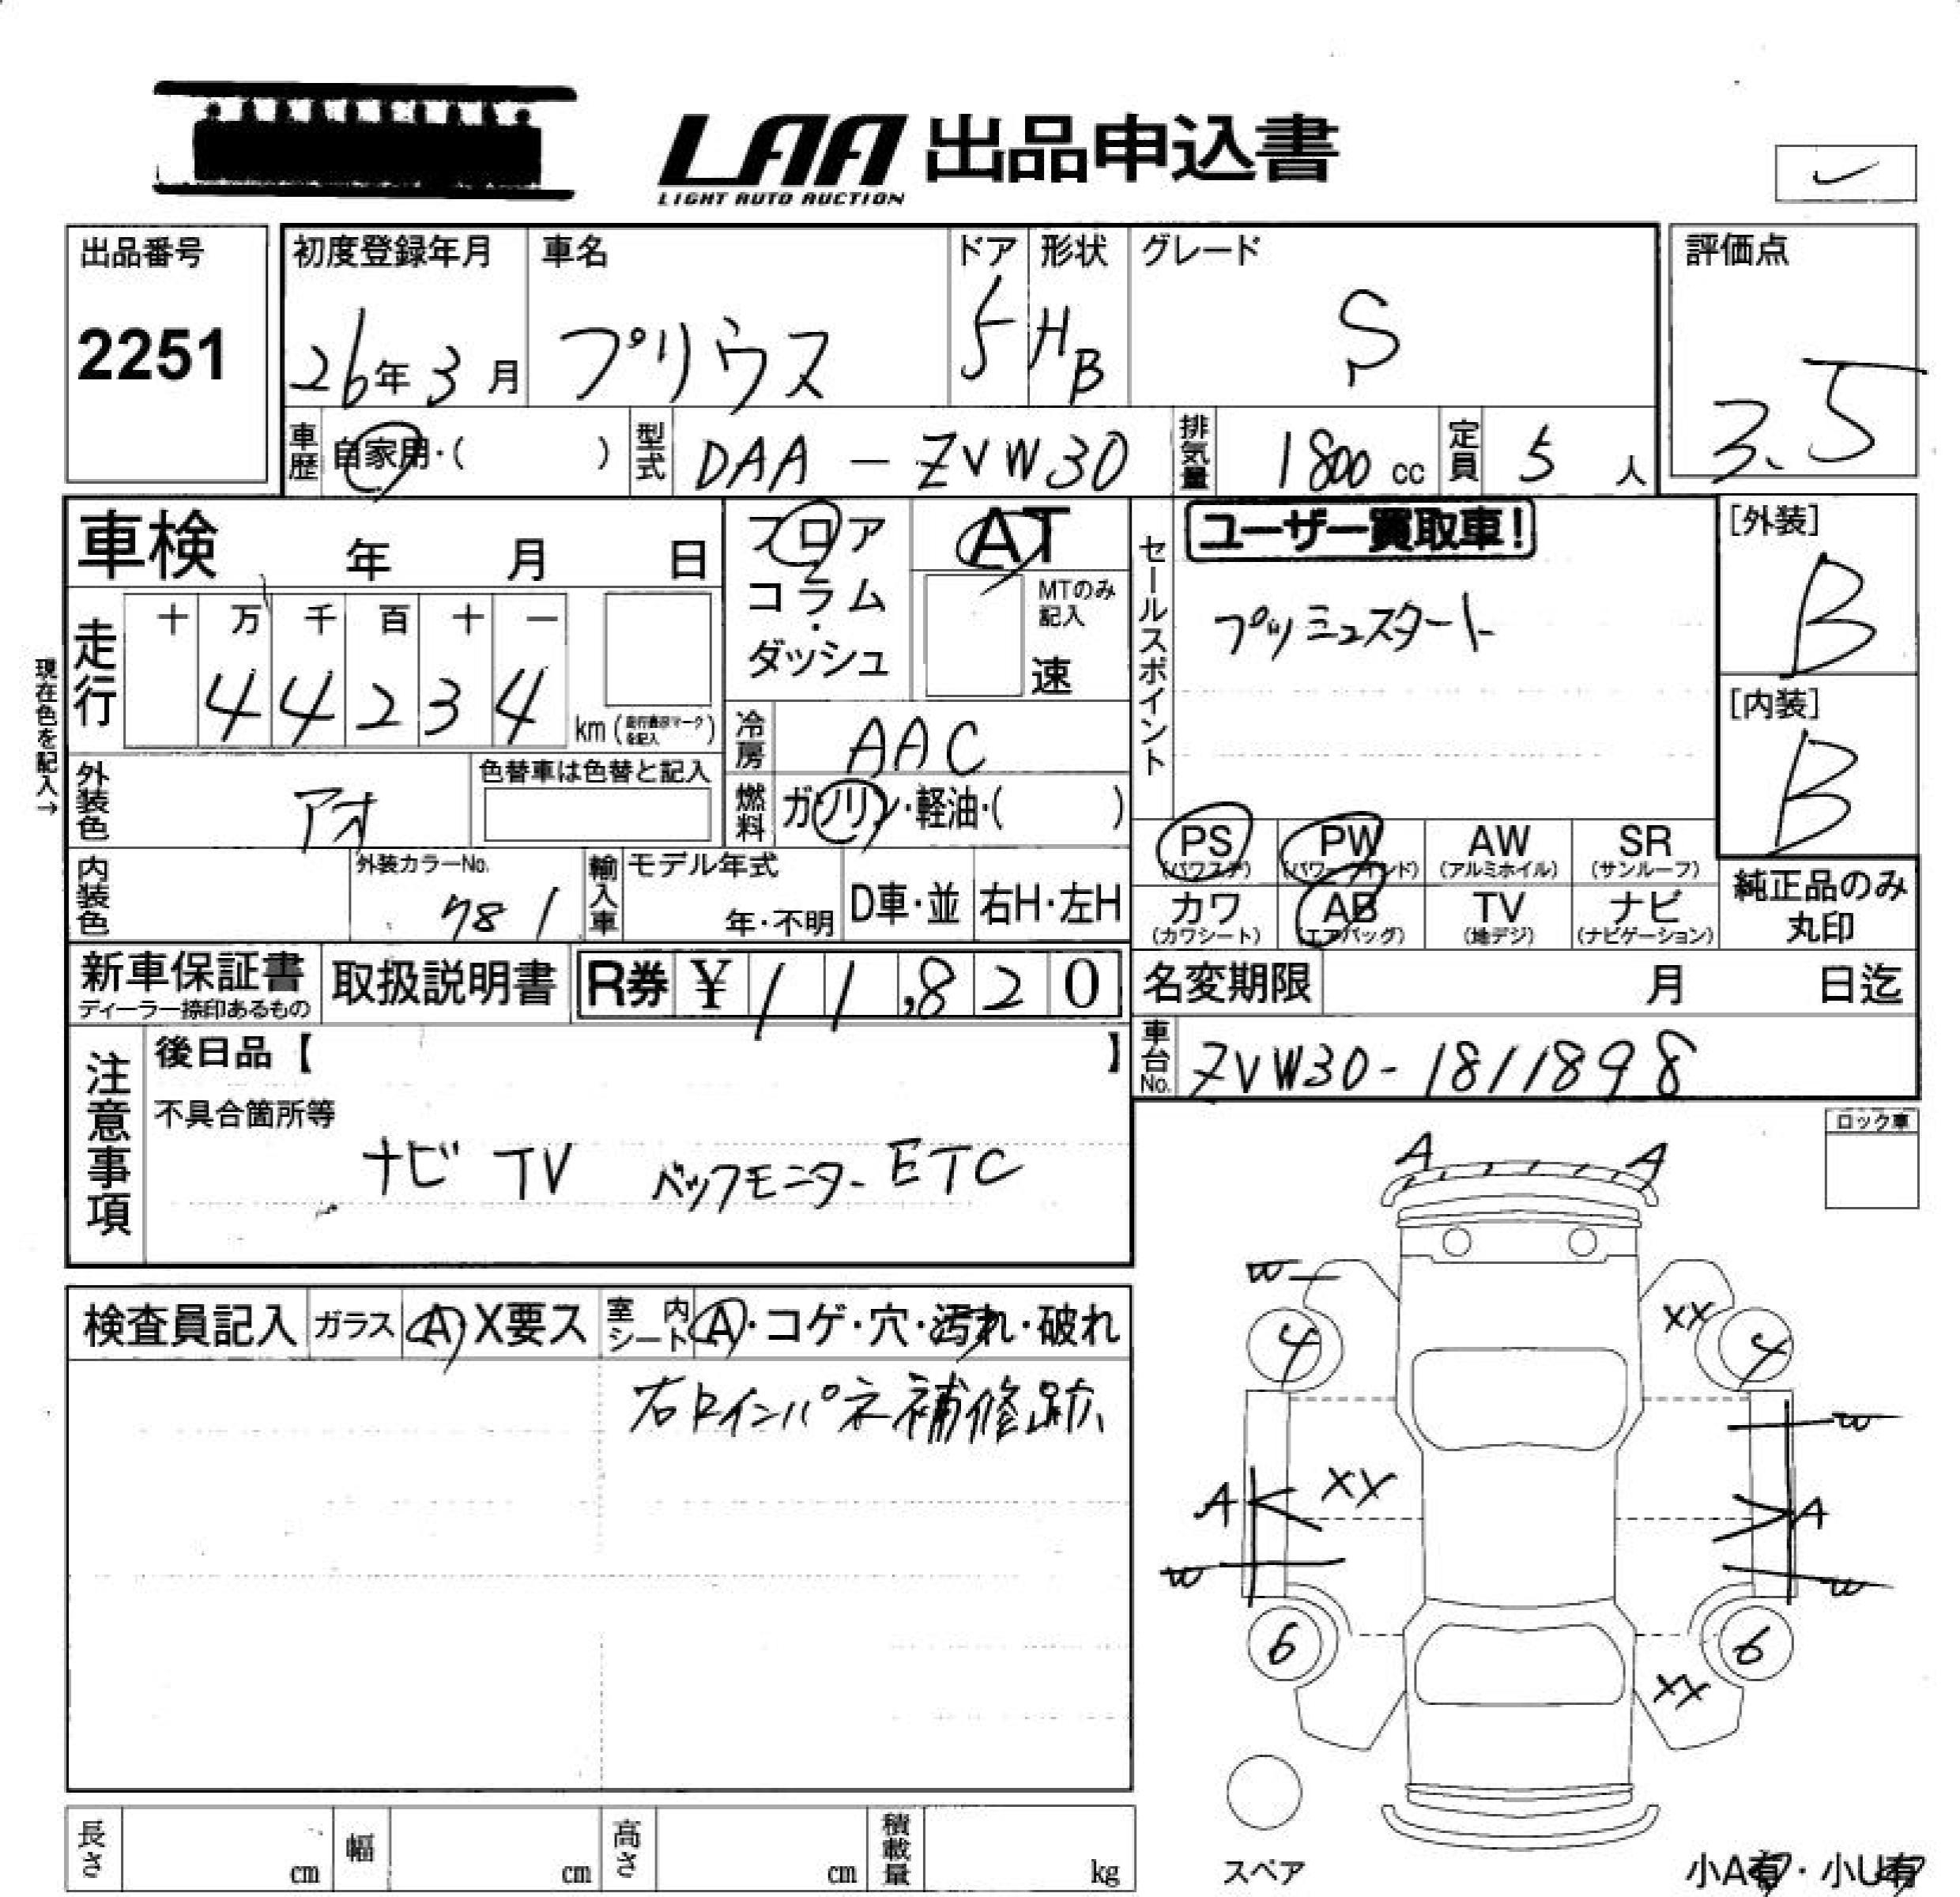 LAA 出品申込書
LIGHT AUTO AUCTION
出品番号
2251
初度登録年月
26年3月
車名
プリウス
ドア
5
形状
HB
グレード
S
評価点
3.5
車歴
自家用・( )
型式
DAA-ZVW30
排気量
1800 cc
定員
5 人
車検 年 月 日
フロア
コラム
・
ダッシュ
AT
MTのみ
記入
速
セールスポイント
ユーザー買取車!
プッシュスタート
[外装]
B
[内装]
B
現在色を記入→
走行
十 万 千 百 十 一
4 4 2 3 4
km (走行表示マークを記入)
冷房
AAC
外装色
アオ
色替車は色替と記入
燃料
ガソリン・軽油・( )
PS
(パワステ)
PW
(パワーウインド)
AW
(アルミホイル)
SR
(サンルーフ)
カワ
(カワシート)
AB
(エアバッグ)
TV
(地デジ)
ナビ
(ナビゲーション)
純正品のみ
丸印
内装色
外装カラーNo.
781
輸入車
モデル年式
年・不明
D車・並
右H・左H
新車保証書
ディーラー捺印あるもの
取扱説明書
R券 ¥ 11,820
名変期限 月 日迄
車台No.
ZVW30-1811898
注意事項
後日品【 】
不具合箇所等
ナビ TV バックモニター ETC
ロック車
検査員記入
ガラス
A・X要ス
室内
シート
A・コゲ・穴・汚れ・破れ
右Fインパネ補修跡
A A
W
XX
4 4
W
A XX A
W W
6 6
XX
スペア
小A有・小U有
長さ cm
幅 cm
高さ cm
積載量 kg